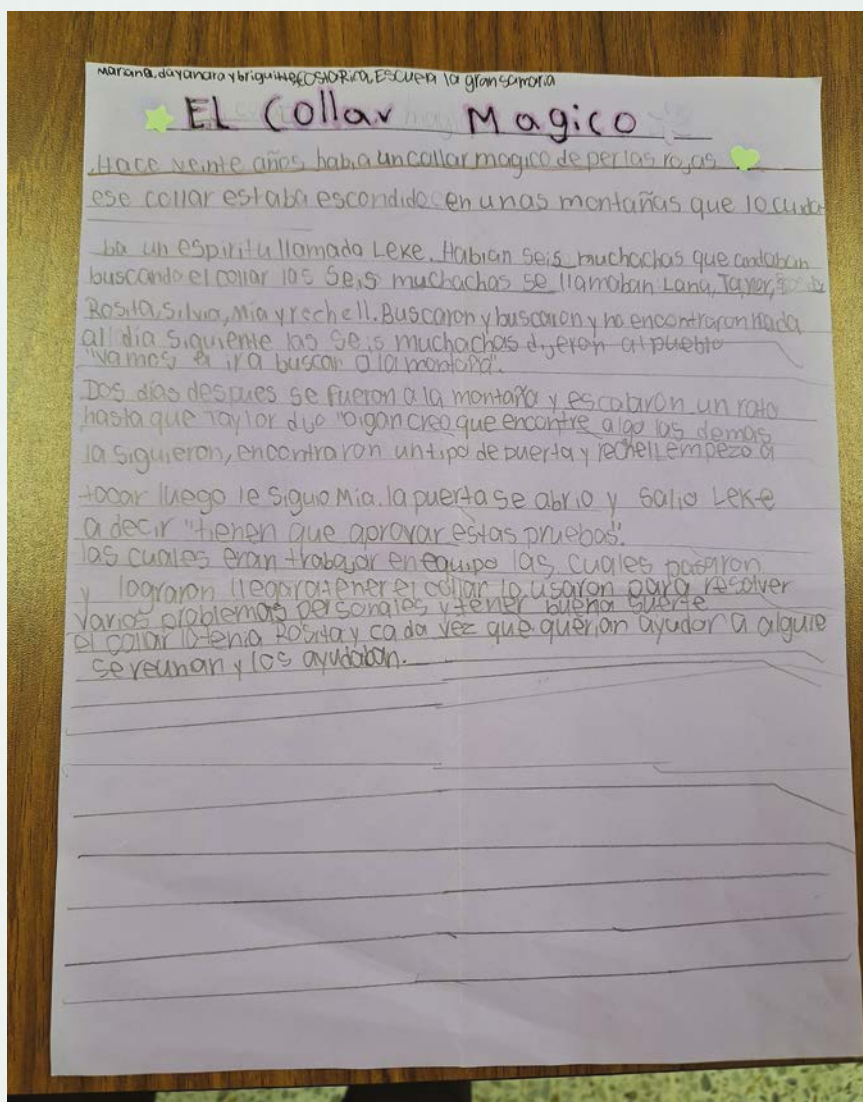 Mariana, dayanara y briguitte COSTA RICA, ESCUELA la gran samaria
EL Collar Magico
Hace veinte años había un collar magico de perlas rojas
ese collar estaba escondido en unas montañas que lo cuida
ba un espiritu llamada Leke. Habian seis muchachas que andaban
buscando el collar las seis muchachas se llamaban Lana, Taylor,
Rosita, Silvia, Mia y rechell. Buscaron y buscaron y no encontraron nada
al día siguiente las seis muchachas dijeron al pueblo
"vamos a ir a buscar a la montaña".
Dos días despues se fueron a la montaña y escalaron un rato
hasta que Taylor dijo "oigan creo que encontre algo las demás
la siguieron, encontraron un tipo de puerta y rechell empezo a
tocar luego le siguio Mia. la puerta se abrio y salio Leke
a decir "tienen que aprovar estas pruebas".
las cuales eran trabajar en equipo las cuales pasaron
y lograron llegar a tener el collar lo usaron para resolver
varios problemas personales y tener buena suerte
el collar lo tenia Rosita y cada vez que querian ayudar a alguie
se reunan y los ayudaban.